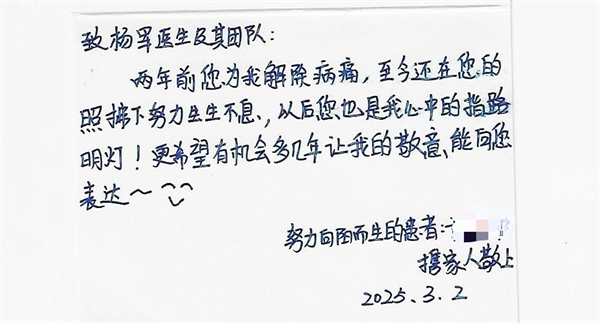 致杨军医生及其团队：
两年前您为我解除病痛，至今还在您的
照拂下努力生生不息，以后您也是我心中的指路
明灯！更希望有机会多几年让我的敬意，能向您
表达～
努力向阳而生的患者：
携家人敬上
2025.3.2